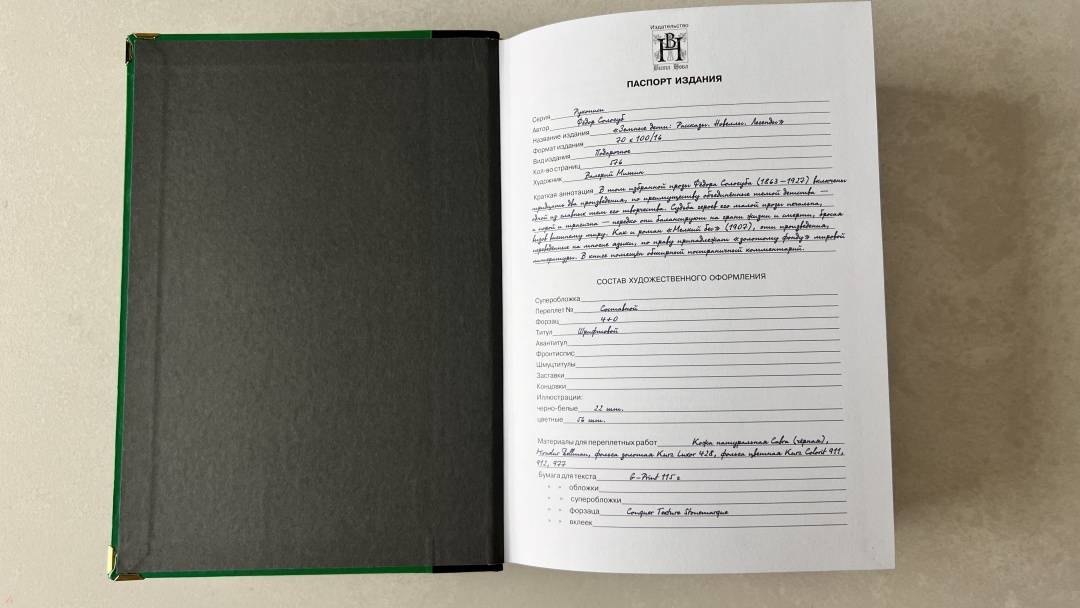 Издательство
ВН
Вита Нова
ПАСПОРТ ИЗДАНИЯ
Серия Рукописи
Автор Фёдор Сологуб
Название издания «Земные дети: Рассказы. Новеллы. Легенды»
Формат издания 70 х 100/16
Вид издания Подарочное
Кол-во страниц 576
Художник Валерий Мишин
Краткая аннотация В том избранной прозы Фёдора Сологуба (1863–1927) включены
тридцать два произведения, по преимуществу объединенные темой детства —
одной из главных тем его творчества. Судьба героев его малой прозы печальна,
а порой и трагична — нередко они балансируют на грани жизни и смерти, бросая
вызов внешнему миру. Как и роман «Мелкий бес» (1907), эти произведения,
переведенные на многие языки, по праву принадлежат «золотому фонду» мировой
литературы. В книге помещен обширный постраничный комментарий.
СОСТАВ ХУДОЖЕСТВЕННОГО ОФОРМЛЕНИЯ
Суперобложка
Переплет № Составной
Форзац 4+0
Титул Шрифтовой
Авантитул
Фронтиспис
Шмуцтитулы
Заставки
Концовки
Иллюстрации:
черно-белые 22 шт.
цветные 56 шт.
Материалы для переплетных работ Кожа натуральная Савоя (черная),
фольга золотная Kurz Luxor 428, фольга цветная Kurz Colorit 911,
912, 977
Бумага для текста G-Print 115 г
» » обложки
» » суперобложки
» » форзаца Conquer Texture Stonemarque
» » вклеек